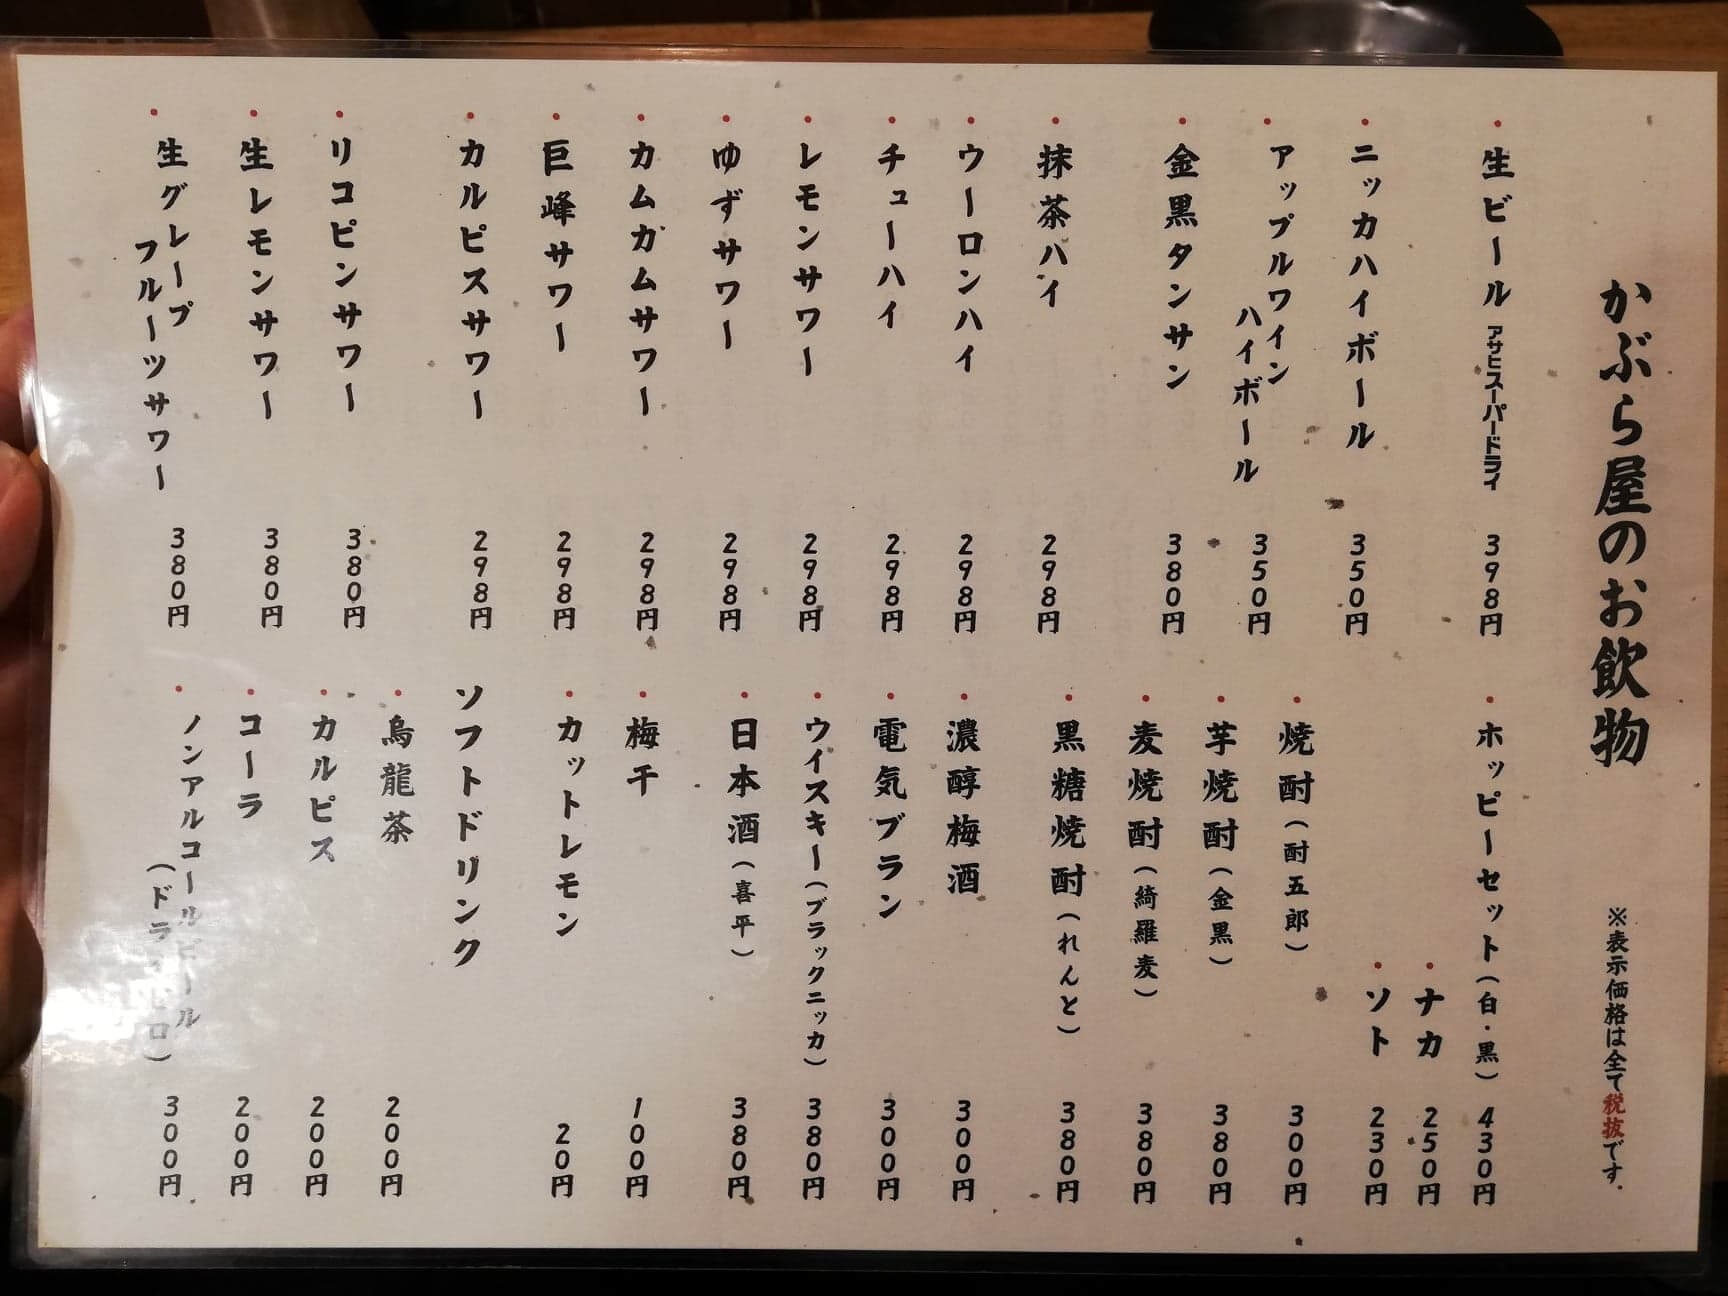 かぶら屋のお飲物
※表示価格は全て税抜です。
生ビール アサヒスーパードライ 398円
ニッカハイボール 350円
アップルワイン
ハイボール 350円
金黒タンサン 380円
抹茶ハイ 298円
ウーロンハイ 298円
チューハイ 298円
レモンサワー 298円
ゆずサワー 298円
カムカムサワー 298円
巨峰サワー 298円
カルピスサワー 298円
リコピンサワー 380円
生レモンサワー 380円
生グレープ
フルーツサワー 380円
ホッピーセット(白・黒) 430円
ナカ 250円
ソト 230円
焼酎(酎五郎) 300円
芋焼酎(金黒) 380円
麦焼酎(綺羅麦) 380円
黒糖焼酎(れんと) 380円
濃醇梅酒 300円
電気ブラン 300円
ウイスキー(ブラックニッカ) 380円
日本酒(喜平) 380円
梅干 100円
カットレモン 20円
ソフトドリンク
烏龍茶 200円
カルピス 200円
コーラ 200円
ノンアルコールビール
(ドライゼロ) 300円